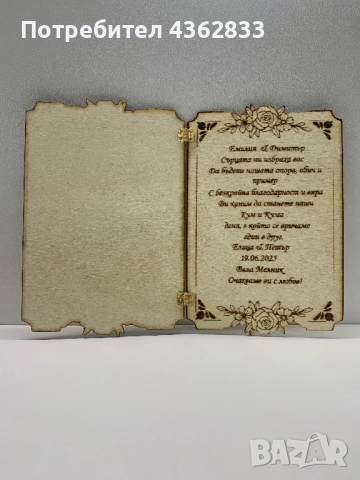 Потребител 4362833
Емилия & Димитър
Сърцата ни избраха вас
Да бъдете нашата опора, обич и
пример
С безкрайна благодарност и вяра
Ви каним да станете наши
Кум и Кума
деня, в който се вричаме
един в друг.
Елица & Петър
19.06.2025
Вила Мелник
Очакваме ви с любов!
BAZAR